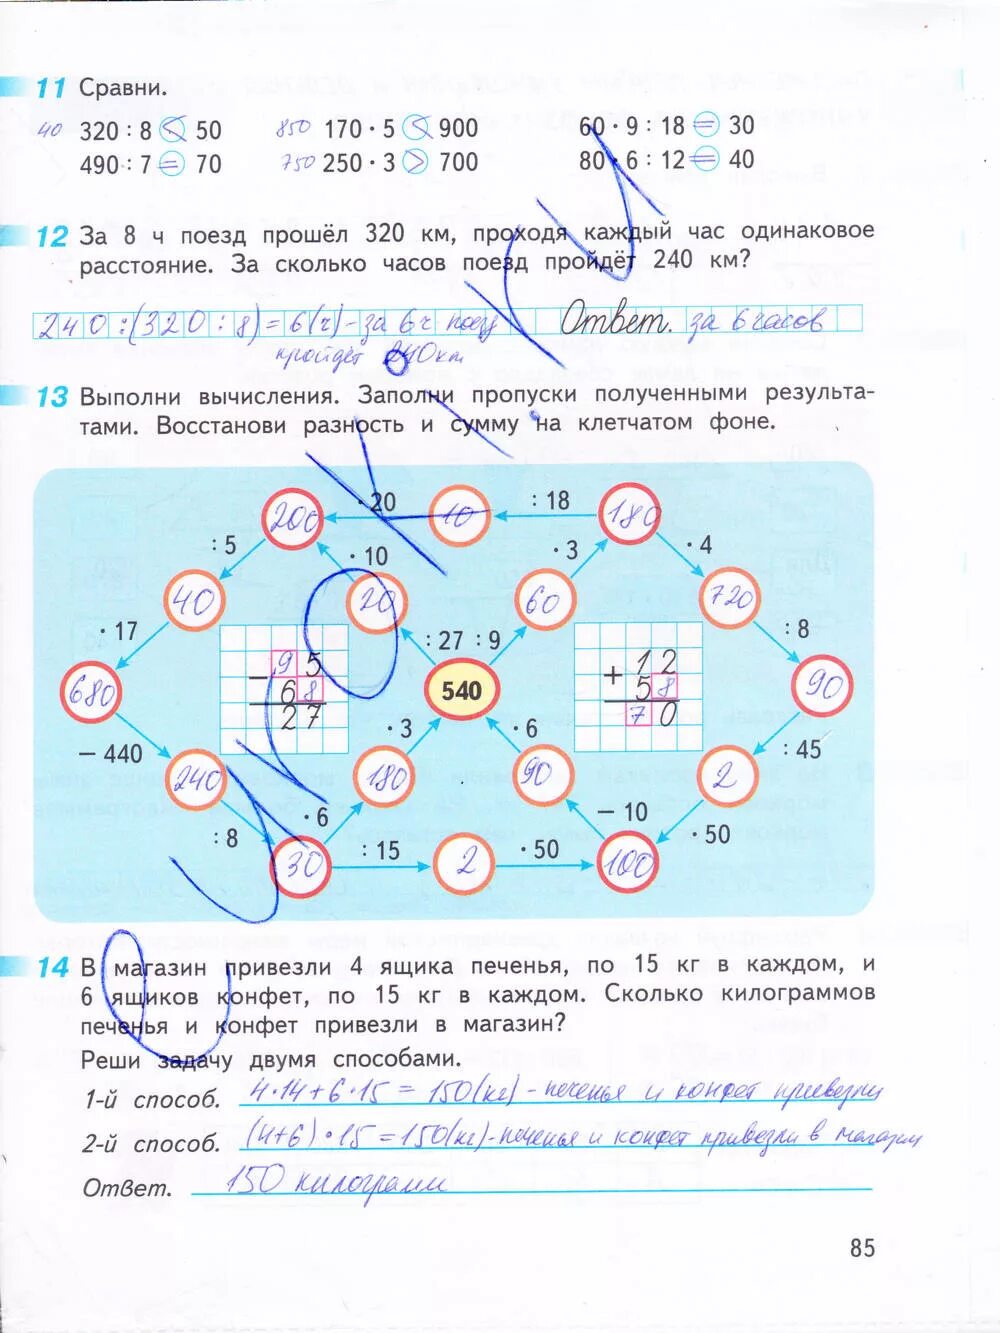 11 Сравни.
40 320 : 8 < 50 850 170 · 5 < 900 60 · 9 : 18 = 30
490 : 7 = 70 750 250 · 3 > 700 80 · 6 : 12 = 40
12 За 8 ч поезд прошёл 320 км, проходя каждый час одинаковое
расстояние. За сколько часов поезд пройдёт 240 км?
240 : (320 : 8) = 6 (ч) - за 6 ч поезд Ответ. за 6 часов
пройдёт 240 км
13 Выполни вычисления. Заполни пропуски полученными результа-
тами. Восстанови разность и сумму на клетчатом фоне.
200 · 20 10 : 18 180
: 5 · 10 · 3 · 4
40 20 60 720
· 17 : 27 : 9 : 8
95 12
− 68 + 58
27 70
680 540 90
− 440 · 3 · 6 : 45
240 180 90 2
: 8 · 6 − 10 · 50
30 : 15 2 · 50 100
14 В магазин привезли 4 ящика печенья, по 15 кг в каждом, и
6 ящиков конфет, по 15 кг в каждом. Сколько килограммов
печенья и конфет привезли в магазин?
Реши задачу двумя способами.
1-й способ. 4·14+6·15 = 150(кг) - печенья и конфет привезли
2-й способ. (4+6)·15 = 150(кг) - печенья и конфет привезли в магазин
Ответ. 150 килограмм
85